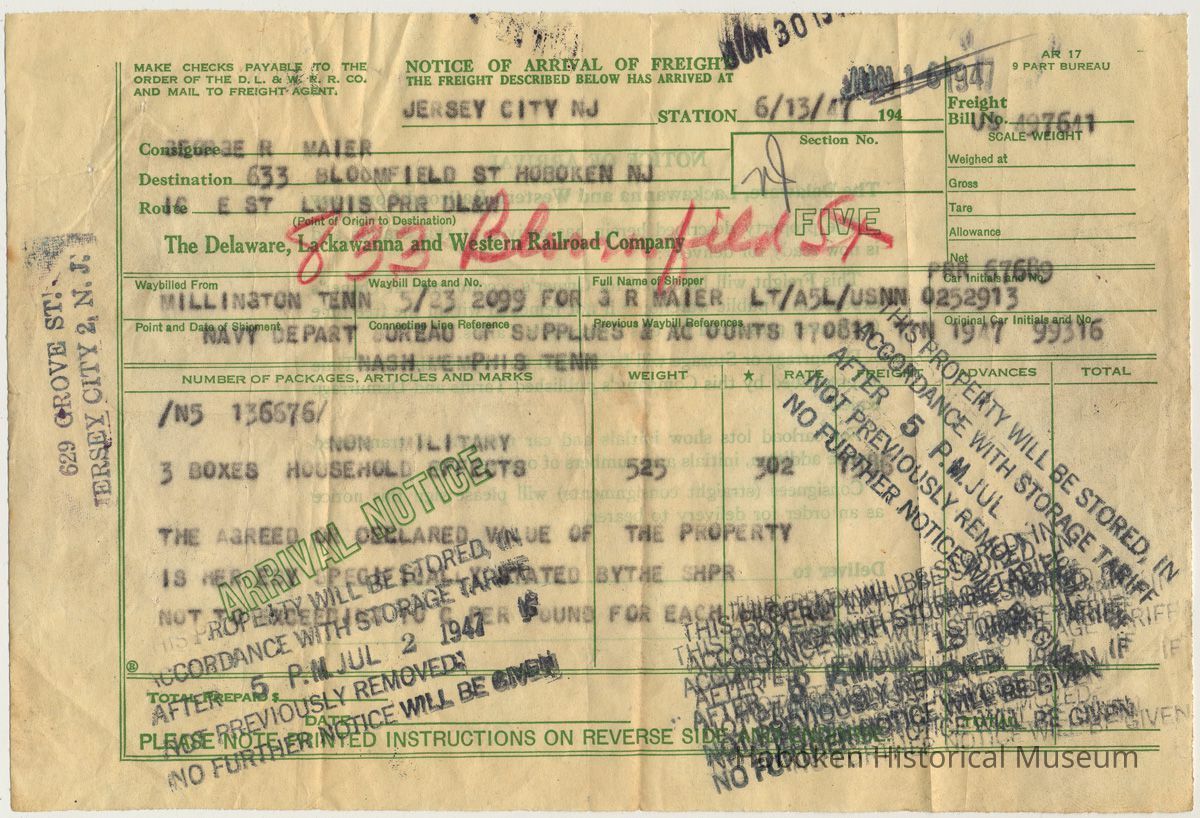 JUN 30 19
MAKE CHECKS PAYABLE TO THE
ORDER OF THE D. L. & W. R. R. CO.
AND MAIL TO FREIGHT AGENT.
NOTICE OF ARRIVAL OF FREIGHT
THE FREIGHT DESCRIBED BELOW HAS ARRIVED AT
AR 17
9 PART BUREAU
JUN 1 6 1947
JERSEY CITY NJ STATION 6/13/47 194
Freight
Bill No. 497641
SCALE WEIGHT
Consignee GEORGE R MAIER
Section No.
Weighed at
Destination 633 BLOOMFIELD ST HOBOKEN NJ
NJ
Gross
Route IC E ST LOUIS PRR DL&W
Tare
(Point of Origin to Destination)
FIVE
Allowance
833 Bloomfield St
The Delaware, Lackawanna and Western Railroad Company
Net
Waybilled From
Waybill Date and No.
Full Name of Shipper
PRR 67689
Car Initials and No.
MILLINGTON TENN 5/23 2099 FOR G R MAIER LT/A5L/USNN 0252913
Point and Date of Shipment
Connecting Line Reference
Previous Waybill References
Original Car Initials and No.
NAVY DEPART BUREAU OF SUPPLUES & AC OUNTS 1947 99316
NASH MEMPHIS TENN
NUMBER OF PACKAGES, ARTICLES AND MARKS WEIGHT ★ RATE FREIGHT ADVANCES TOTAL
629 GROVE ST.
JERSEY CITY 2, N. J.
/N5 136676/
NON MILITARY
3 BOXES HOUSEHOLD EFFECTS 525 302
ARRIVAL NOTICE
THE AGREED OR DECLARED VALUE OF THE PROPERTY
IS HEREBY SPECIFICALLY STATED BYTHE SHPR
NOT TO EXCEED 10 C PER POUND FOR EACH
THIS PROPERTY WILL BE STORED, IN
ACCORDANCE WITH STORAGE TARIFF
AFTER 5 P.M. JUL
NOT PREVIOUSLY REMOVED.
NO FURTHER NOTICE
THIS PROPERTY WILL BE STORED, IN
ACCORDANCE WITH STORAGE TARIFF
AFTER 5 P.M. JUL 2 1947 IF
NOT PREVIOUSLY REMOVED.
NO FURTHER NOTICE WILL BE GIVEN
THIS PROPERTY WILL BE STORED, IN
ACCORDANCE WITH STORAGE TARIFF
AFTER 5 P.M. JUN IF
NOT PREVIOUSLY REMOVED.
NO FURTHER NOTICE WILL BE GIVEN
®
TOTAL PREPAID $
DATE
TOTAL
PLEASE NOTE PRINTED INSTRUCTIONS ON REVERSE SIDE
Hoboken Historical Museum